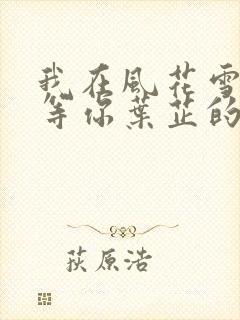 我在風花雪
等你葉芷的
荻原浩